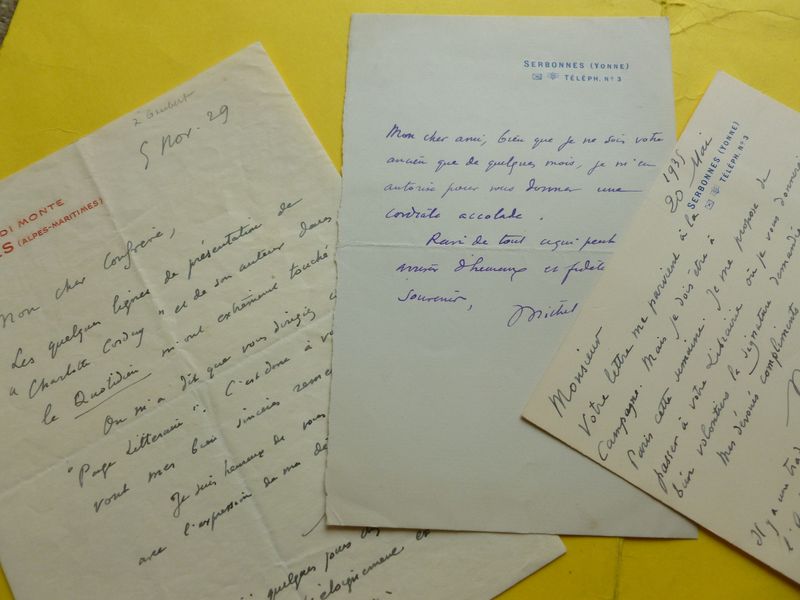 2 Gaubert
5 Nov. 29
DI MONTE
ES (ALPES-MARITIMES)
Mon cher Confrère,
Les quelques lignes de présentation de
"Charlotte Corday" et de son auteur dans
le Quotidien m'ont extrêment touché
On m'a dit que vous dirigiez
"Page Littéraire". C'est donc à vo
vont mes bien sincères remer
Je suis heureux de vous
avec l'expression de ma dé
quelques jours
éloignement
SERBONNES (YONNE)
TÉLÉPH. Nº 3
Mon cher ami, bien que je ne sois votre
ancien que de quelques mois, je m'en
autorise pour vous donner une
cordiale accolade.
Ravi de tout ce qui peut
d'heureux et fidèle
souvenir,
Michel
SERBONNES (YONNE)
TÉLÉPH. Nº 3
1935
20 Mai
Monsieur
Votre lettre me parvient à la
Campagne. Mais je dois être à
Paris cette semaine. Je me propose de
passer à votre Librairie où je vous donnerai
bien volontiers la signature demandée
Mes dévoués compliments
Il y a une trad